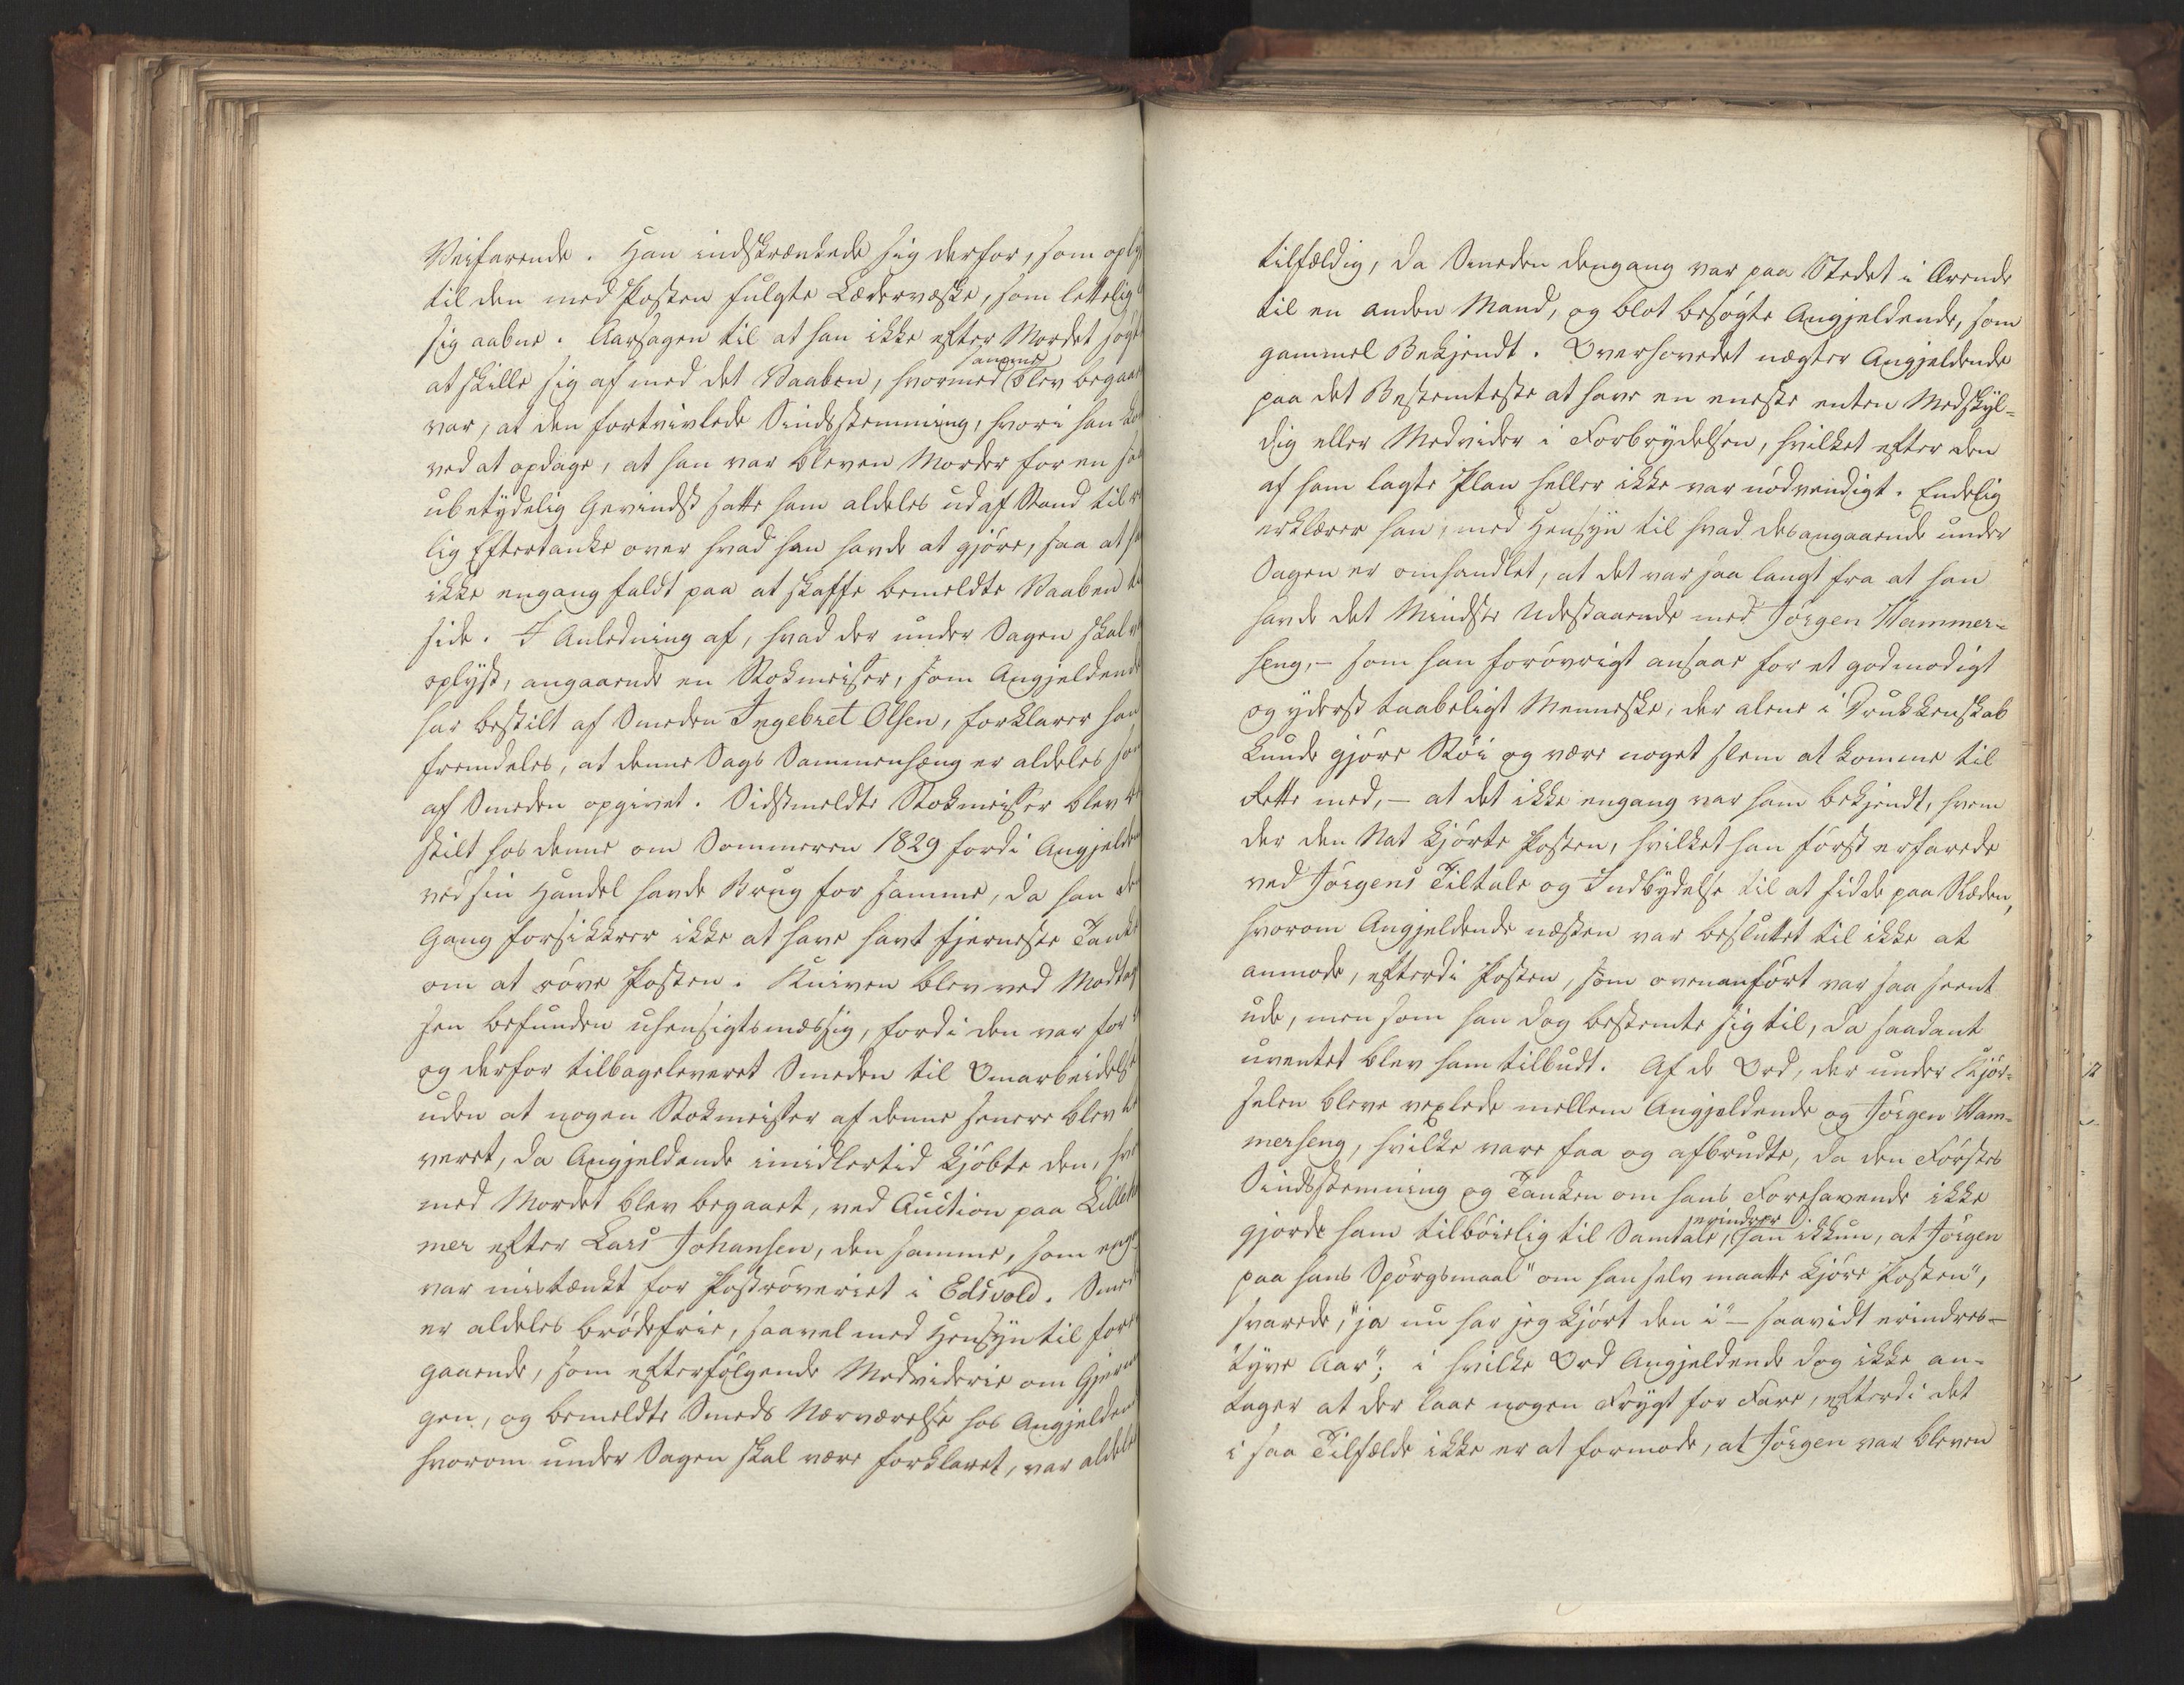 Veifarende. Han indskrænkede sig derfor, som oply
til den med Posten fulgte Lædervæske, som lettelig
sig aabne. Aarsagen til at han ikke efter Mordet søgt
at skille sig af med det Vaaben, hvormed samme blev begaaet
var, at den fortvivlede Sindsstemning, hvori han ko
ved at opdage, at han var bleven Morder for en saa
ubetydelig Gevindst satte ham aldeles ud af Stand til r
lig Eftertanke over hvad han havde at gjøre, saa at ha
ikke engang faldt paa at skaffe bemeldte Vaaben ti
side. I Anledning af, hvad der under Sagen skal v
oplyst, angaaende en Stokmeisser, som Angjeldende
har bestilt af Smeden Ingebret Olsen, forklarer han
fremdeles, at denne Sags Sammenhæng er aldeles som
af Smeden opgivet. Sidstmeldte Stokmeisser blev be
stilt hos denne om Sommeren 1829 fordi Angjelden
ved sin Handel havde Brug for samme, da han den
Gang forsikkrer ikke at have havt fjerneste Tanke
om at røve Posten. Kniven blev ved Modtag
sen befunden uhensigtsmæssig, fordi den var for
og derfor tilbageleveret Smeden til Omarbeidelse
uden at nogen Stokmeisser af denne senere blev le
veret, da Angjeldende imidlertid kjøbte den, hvor
med Mordet blev begaaet, ved Auction paa Lilleha
mer efter Lars Johansen, den samme, som eng
var mistænkt for Postrøveriet i Edsvold. Smed
er aldeles brødefrie, saavel med Hensyn til fore
gaaende, som efterfølgende Medviderie om Gjerni
gen, og bemeldte Smeds Nærværelse hos Angjeldende
hvorom under Sagen skal være forklaret, var aldeles
tilfældig, da Smeden dengang var paa Stedet i Ærende
til en anden Mand, og blot besøgte Angjeldende, som
gammel Bekjendt. Overhovedet nægter Angjeldende
paa det Bestemteste at have en eneste enten Medskyl-
dig eller Medvider i Forbrydelsen, hvilket efter den
af ham lagte Plan heller ikke var nødvendigt. Endelig
erklærer han, med Hensyn til hvad desangaaende under
Sagen er omhandlet, at det var saa langt fra at han
havde det Mindste udestaaende med Jørgen Hammer-
seng, – som han forøvrigt ansaae for et godmodigt
og yderst taabeligt Menneske, der alene i Drukkenskab
kunde gjøre Støi og være noget slem at komme til
Rette med, – at det ikke engang var ham bekjendt, hvem
der den Nat kjørte Posten, hvilket han først erfarede
ved Jørgens Tiltale og Indbydelse til at sidde paa Slæden,
hvorom Angjeldende næsten var besluttet til ikke at
anmode, efterdi Posten, som ovenanført var saa seent
ude, men som han dog bestemte sig til, da saadant
uventet blev ham tilbudt. Af de Ord, der under Kjør-
selen bleve vexlede mellem Angjeldende og Jørgen Ham-
merseng, hvilke vare faa og afbrudte, da den Førstes
Sindsstemning og Tanken om hans Forehavende ikke
gjorde ham tilbøielig til Samtale, erindrer han ikkun, at Jørgen
paa hans Spørgsmaal "om han selv maatte kjøre Posten",
svarede, "ja nu har jeg kjørt den i" – saavidt erindres –
"tyve Aar"; i hvilke Ord Angjeldende dog ikke an-
tager at der laae nogen Frygt for Fare, efterdi det
i saa Tilfælde ikke er at formode, at Jørgen var bleven